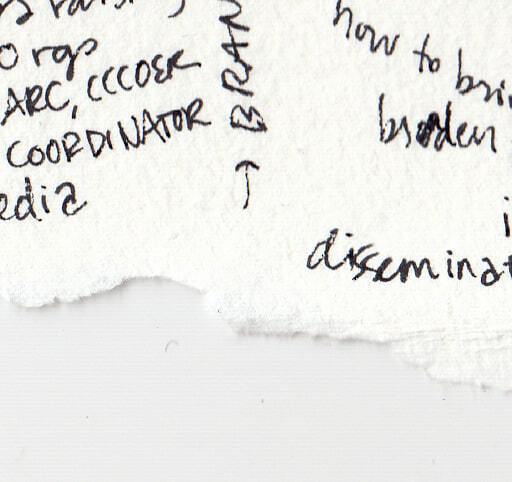 orgs
ARC, CCCOER
COORDINATOR
edia
↑ BRAN
how to bri
broden
i
disseminat